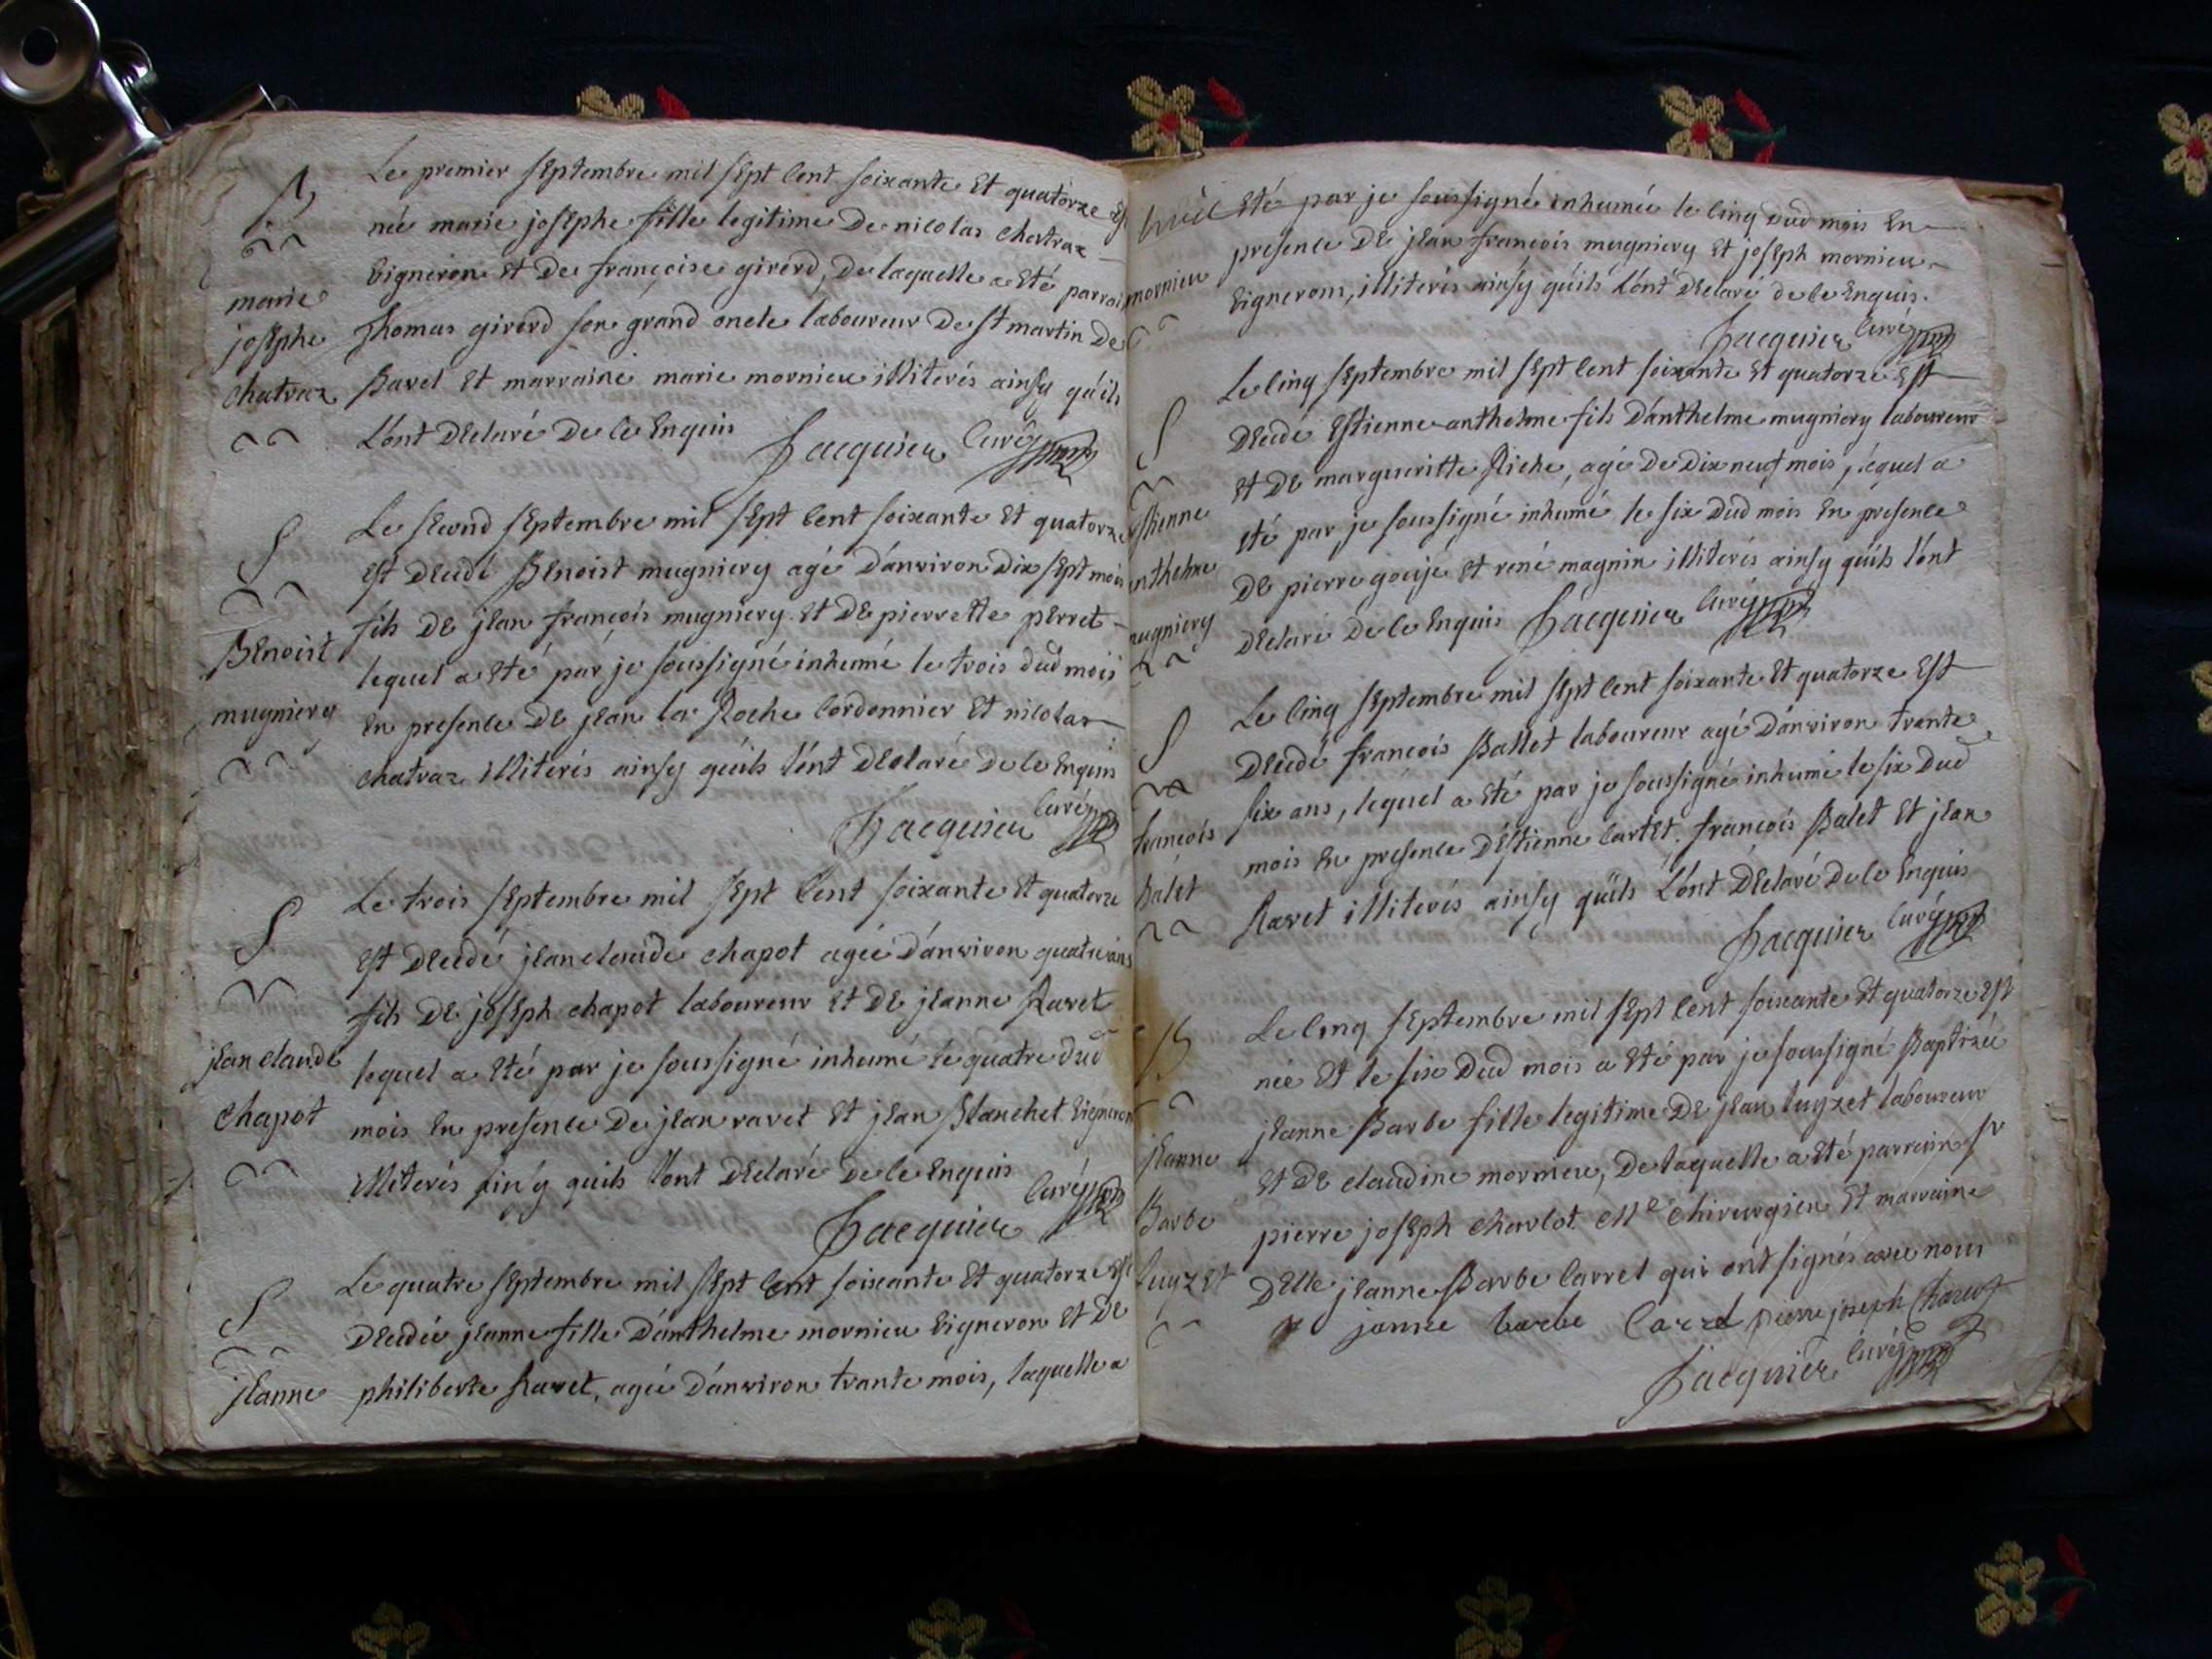 Le premier septembre mil sept cent soixante et quatorze est
née marie josephe fille legitime de nicolas chatraz
vigneron et de françoise girerd, de laquelle a eté parrain
thomas girerd son grand oncle laboureur de st martin de
Bavel et marraine marie mornieu illiterés ainsy qu'ils
l'ont declaré de ce enquis
Jacquier curé
B
marie
josephe
chatraz
Le second septembre mil sept cent soixante et quatorze
est decedé Benoist mugniery agé d'anviron dix sept mois
fils de jean françois mugniery et de pierrette perret
lequel a eté par je soussigné inhumé le trois dud mois
en presence de jean la Roche cordonnier et nicolas
chatraz illiterés ainsy qu'ils l'ont declaré de ce enquis
Jacquier curé
S
Benoist
mugniery
Le trois septembre mil sept cent soixante et quatorze
est decedé jean claude chapot agée d'anviron quatre ans
fils de joseph chapot laboureur et de jeanne Ravet
lequel a eté par je soussigné inhumé le quatre dud
mois en presence de jean ravet et jean Blanchet vigneron
illiterés qu'ils l'ont declaré de ce enquis
Jacquier curé
S
jean claude
chapot
Le quatre septembre mil sept cent soixante et quatorze est
decedée jeanne fille d'anthelme mornieu vigneron et de
philiberte Ravet, agée d'anviron trante mois, laquelle a
S
jeanne
eté par je soussigné inhumée le cinq dud mois en
presence de jean francois mugniery et joseph mornieu
vignerons, illiterés ainsy qu'ils l'ont declaré de ce enquis.
Jacquier curé
mornieu
Le cinq septembre mil sept cent soixante et quatorze est
decedé Estienne anthelme fils d'anthelme mugniery laboureur
et de margueritte Riche, agé de dix neuf mois, lequel a
eté par je soussigné inhumé le six dud mois en presence
de pierre goujé et rené magnin illiterés ainsy qu'ils l'ont
declaré de ce enquis Jacquier curé
S
Estienne
anthelme
mugniery
Le cinq septembre mil sept cent soixante et quatorze est
decedé francois Ballet laboureur agé d'anviron trente
six ans, lequel a eté par je soussigné inhumé le six dud
mois en presence d'estienne cartet. francois Balet et jean
Ravet illiterés ainsy qu'ils l'ont declaré de ce enquis
Jacquier curé
S
francois
balet
Le cinq septembre mil sept cent soixante et quatorze est
née et le six dud mois a eté par je soussigné Baptizée
jeanne Barbe fille legitime de jean luyzet laboureur
et de claudine mornieu, de laquelle a eté parrain sr
pierre joseph charlot Me chirurgien et marraine
delle jeanne Barbe Carrel qui ont signés avec nous
janne barbe Carrel pierre joseph
Jacquier curé
B
jeanne
Barbe
luyzet